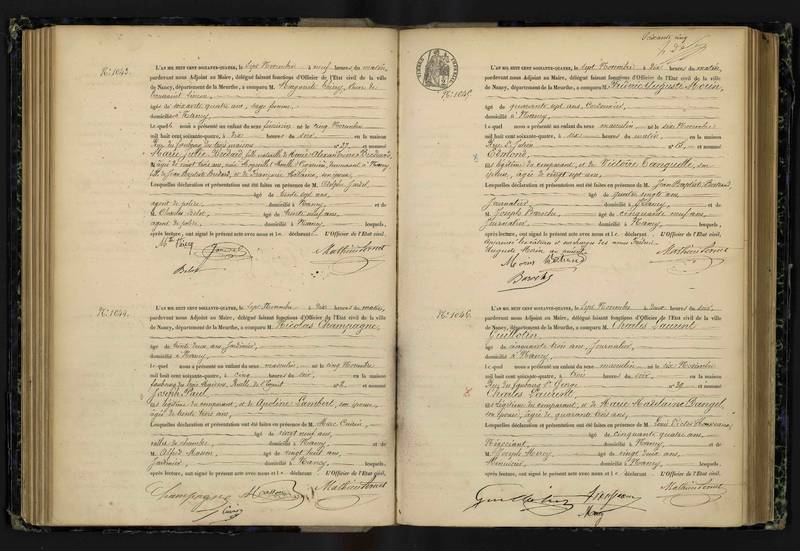 N.º 1043.
L'AN MIL HUIT CENT SOIXANTE-QUATRE, le Sept Novembre à neuf heures du matin,
pardevant nous Adjoint au Maire, délégué faisant fonctions d'Officier de l'État civil de la ville
de Nancy, département de la Meurthe, a comparu M. Marguerite Thiery, Veuve de
âgé de soixante quatre ans, sage femme,
domicilié à Nancy
Lequel nous a présenté un enfant du sexe féminin né le cinq Novembre
mil huit cent soixante-quatre, à dix heures du soir, en la maison
Rue du faubourg des trois maisons n.º 37, et nommé
Marie Julie Bedard, fille naturelle de Marie Alexandrine Bedard,
âgée de vingt trois ans, demeurant à Nancy
fille de Jean Baptiste Bedard, et de Françoise son épouse,
Lesquelles déclaration et présentation ont été faites en présence de M. Adolphe Jandel
âgé de trente sept ans,
agent de police, domicilié à Nancy et de
M. Charles Belot, âgé de trente neuf ans,
agent de police, domicilié à Nancy lesquels,
après lecture, ont signé le présent acte avec nous et le déclarant. L'Officier de l'État civil,
Jandel Mathieu
Belot
N.º 1044.
L'AN MIL HUIT CENT SOIXANTE-QUATRE, le Sept Novembre à dix heures du matin,
pardevant nous Adjoint au Maire, délégué faisant fonctions d'Officier de l'État civil de la ville
de Nancy, département de la Meurthe, a comparu M. Nicolas Champagne,
âgé de trente deux ans, Jardinier,
domicilié à Nancy,
Lequel nous a présenté un enfant du sexe masculin né le cinq Novembre
mil huit cent soixante-quatre, à cinq heures du soir, en la maison
faubourg des trois Maisons, Ruelle n.º 2, et nommé
Joseph Paul,
fils légitime du comparant, et de Apoline Lambert, son épouse,
âgée de trente trois ans,
Lesquelles déclaration et présentation ont été faites en présence de M. Marc
âgé de vingt neuf ans,
valet de chambre, domicilié à Nancy, et de
M. Alfred Masson âgé de vingt huit ans,
Jardinier, domicilié à Nancy, lesquels,
après lecture, ont signé le présent acte avec nous et le déclarant. L'Officier de l'État civil,
Champagne Masson Mathieu
Soixante cinq
N.º 1045.
L'AN MIL HUIT CENT SOIXANTE-QUATRE, le Sept Novembre à dix heures du matin,
pardevant nous Adjoint au Maire, délégué faisant fonctions d'Officier de l'État civil de la ville
de Nancy, département de la Meurthe, a comparu M. Frédéric Auguste Morin,
âgé de quarante sept ans, Cordonnier,
domicilié à Nancy,
Lequel nous a présenté un enfant du sexe masculin né le six Novembre
mil huit cent soixante-quatre, à six heures du matin, en la maison
Rue St Julien n.º 15, et nommé
fils légitime du comparant, et de Victoire son
épouse, âgée de vingt sept ans,
Lesquelles déclaration et présentation ont été faites en présence de M. Jean Baptiste Bertrand,
âgé de quatre vingts ans
Journalier domicilié à Nancy, et de
M. Joseph âgé de cinquante neuf ans,
Journalier, domicilié à Nancy, lesquels,
après lecture, ont signé le présent acte avec nous et le déclarant. L'Officier de l'État civil,
Morin Bertrand Mathieu
N.º 1046.
L'AN MIL HUIT CENT SOIXANTE-QUATRE, le Sept Novembre à deux heures du soir,
pardevant nous Adjoint au Maire, délégué faisant fonctions d'Officier de l'État civil de la ville
de Nancy, département de la Meurthe, a comparu M. Charles Laurent
Guillotin,
âgé de cinquante trois ans, Journalier,
domicilié à Nancy,
Lequel nous a présenté un enfant du sexe masculin né le six Novembre
mil huit cent soixante-quatre, à trois heures du soir, en la maison
Rue du faubourg St George n.º 20 et nommé
Charles Laurent
fils légitime du comparant, et de Marie Madelaine
son épouse, âgée de quarante trois ans,
Lesquelles déclaration et présentation ont été faites en présence de M. Louis Victor
âgé de cinquante quatre ans,
Négociant, domicilié à Nancy, et de
M. Joseph âgé de vingt huit ans,
Menuisier, domicilié à Nancy, lesquels,
après lecture, ont signé le présent acte avec nous et le déclarant. L'Officier de l'État civil,
Guillotin Mathieu